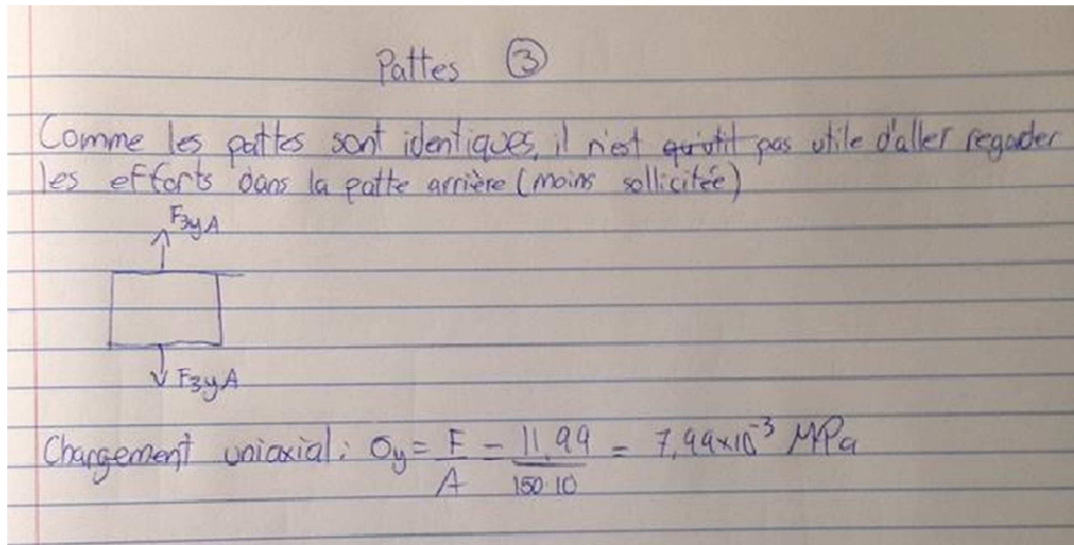 Pattes ③
Comme les pattes sont identiques, il n'est pas utile d'aller regader
les efforts dans la patte arrière (moins sollicitée)
F3yA
F3yA
Chargement uniaxial : σy = F/A = 11,99/150·10 = 7,99x10⁻³ MPa